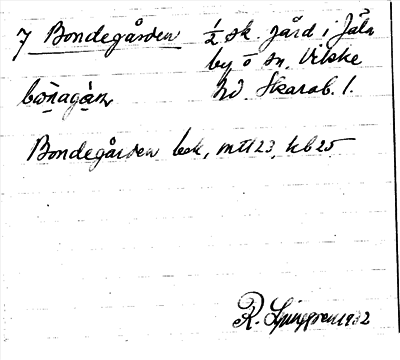 7 Bondegården ½ sk. järd i Jäla
by o sn, Vilske
bo̱nagàṉ hd. Skarab. l.
Bondegården bek, mtl 23, kb 25
R. Ljunggren 1932